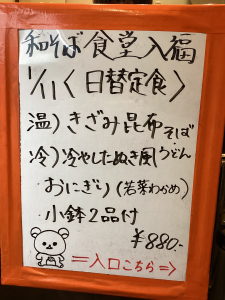 和そば食堂入福
1/11〈日替定食〉
温)きざみ昆布そば
冷)冷やしたぬき風うどん
・おにぎり(若菜わかめ)
・小鉢2品付
¥880-
=入口こちら⇒